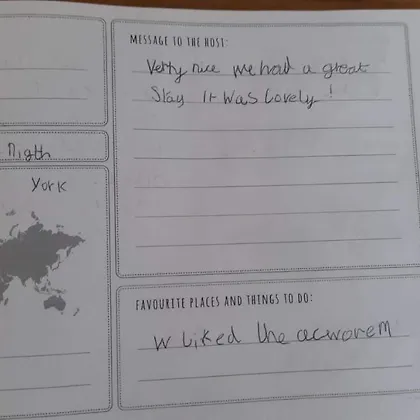 MESSAGE TO THE HOST:
Verty nice we had a great
Stay It Was Lovely !
Nigth
York
FAVOURITE PLACES AND THINGS TO DO:
W Liked the acworem